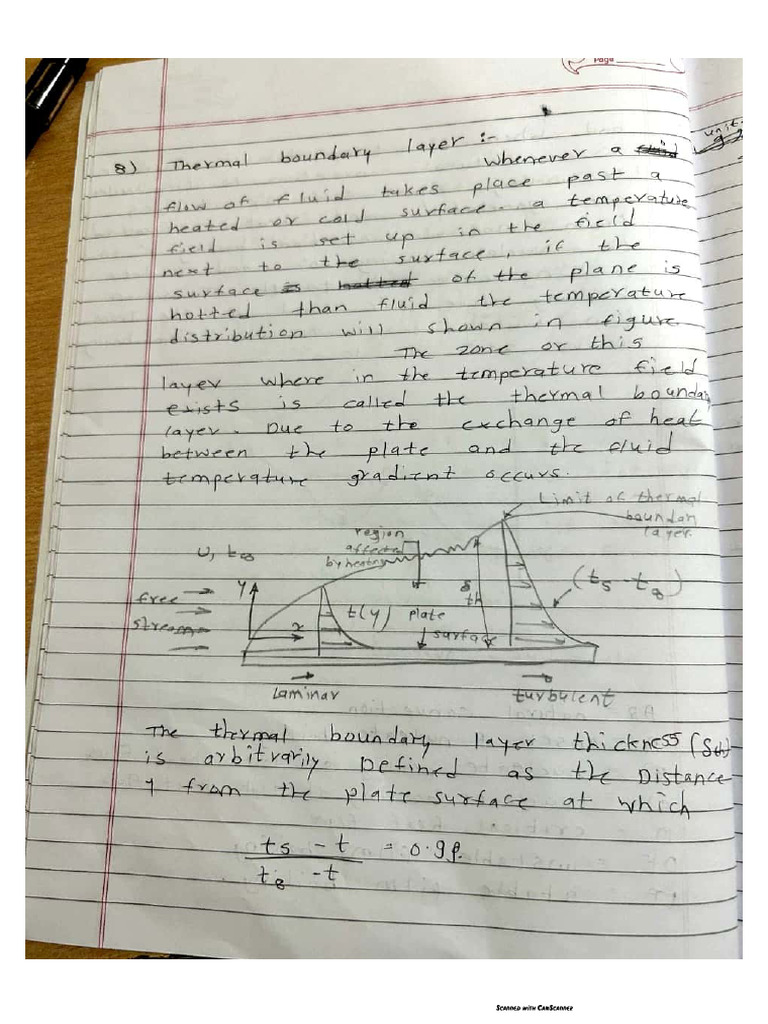 Page
unit
8) Thermal boundary layer :-
whenever a
flow of fluid takes place past a
heated or cold surface. a temperature
field is set up in the field
next to the surface, if the
surface is hotted of the plane is
hotted than fluid the temperature
distribution will shown in figure
The zone or this
layer where in the temperature field
exists is called the thermal boundary
layer. Due to the exchange of heat
between the plate and the fluid
temperature gradient occurs.
Limit of thermal
boundary
layer.
region
affected
by heating
U, t∞
y
free
stream
x
t(y)
plate
surface
δ
th
(ts - t∞)
laminar
turbulent
The thermal boundary layer thickness (δth)
is arbitrarily Defined as the Distance
y from the plate surface at which
ts - t
t∞ - t
= 0.99.